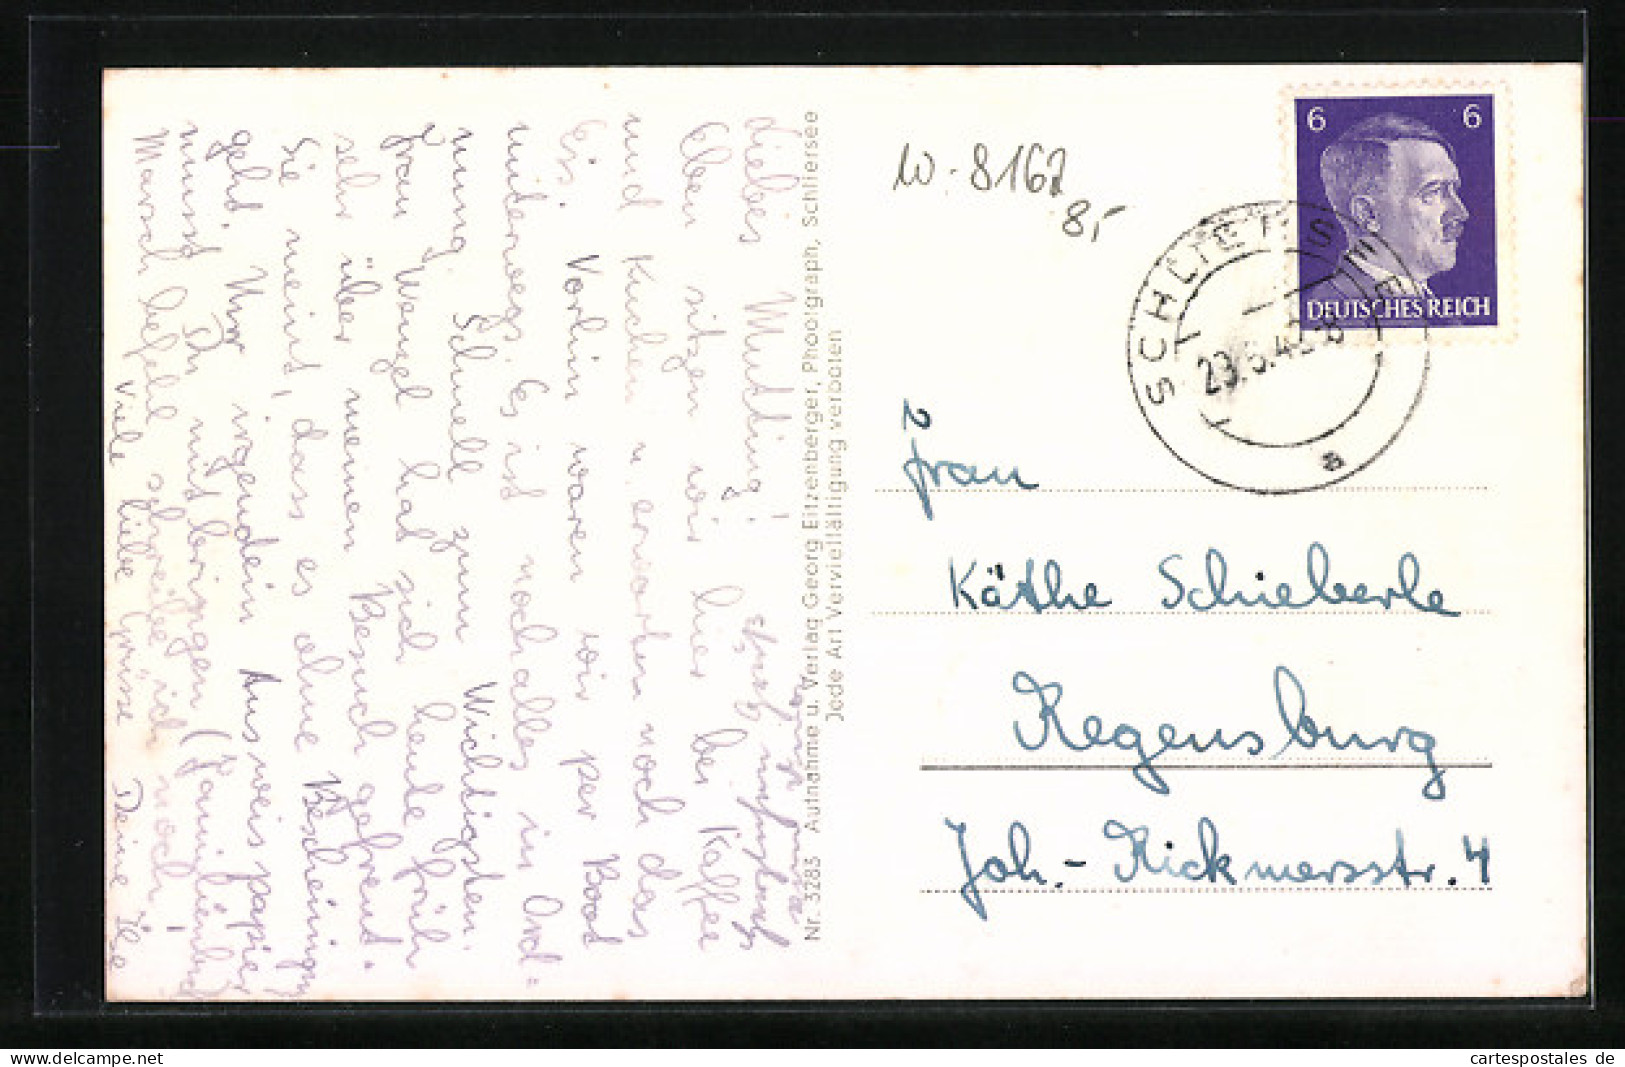 Liebes Mutting!
Eben sitzen wir hier bei Kaffee
und Kuchen u. erwarten noch das
Eis. Vorhin waren wir per Boot
unterwegs. Es ist noch alles in Ord=
nung. Schnell zum Wichtigsten.
Frau Wenzel hat sich heute früh
sehr über meinen Besuch gefreut.
Sie meint, dass es ohne Bescheinigung
geht. Nur irgendein Ausweispapier
musst Du mitbringen (Familienbuch)
Marschbefehl schreibe ich noch!
Viele liebe Grüsse Deine Ilse
Nr. 3283 Aufnahme u. Verlag Georg Eitzenberger, Phootgraph, Schliersee
Jede Art Vervielfältigung verboten
W-8162
8,-
6 6
DEUTSCHES REICH
SCHLIERSEE
a
Frau
Käthe Schieberle
Regensburg
Joh.-Rickmersstr. 4
cartespostales.de
www.delcampe.net
cartespostales de